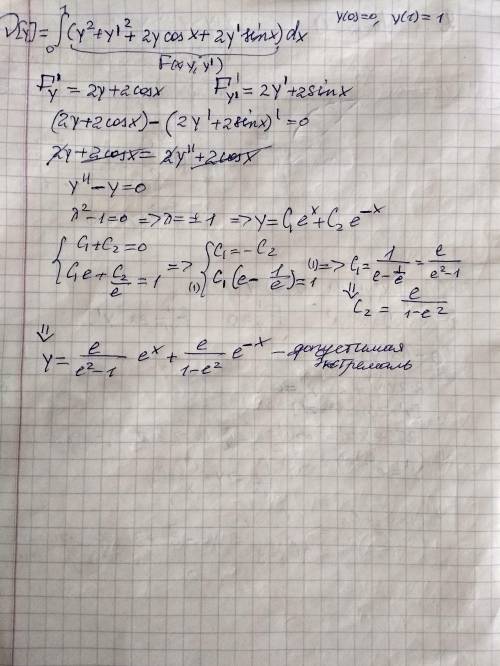 V[y] = ∫₀¹ (y² + y'² + 2y cos x + 2y' sin x) dx    y(0)=0, y(1)=1
F(x, y, y')
F'y = 2y + 2cosx    F'y' = 2y' + 2sinx
(2y + 2cosx) − (2y' + 2sinx)' = 0
2y + 2cosx = 2y'' + 2cosx
y'' − y = 0
λ² − 1 = 0 => λ = ± 1 => y = C₁eˣ + C₂e⁻ˣ
{ C₁ + C₂ = 0    => { C₁ = −C₂    (1) => C₁ = 1/(e − 1/e) = e/(e² − 1)
C₁e + C₂/e = 1    (1) C₁(e − 1/e) = 1    => C₂ = e/(1 − e²)
=> y = e/(e² − 1) eˣ + e/(1 − e²) e⁻ˣ – допустимая
экстремаль